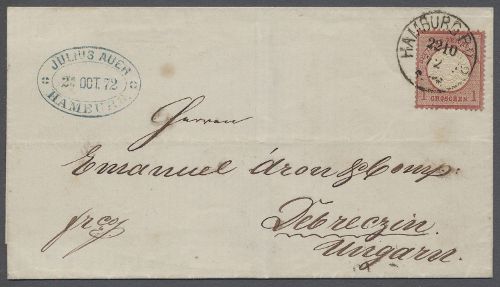 JULIUS AUER
OCT. 72
HAMBURG
HAMBURG
22 10
1 GROSCHEN 1
Herren
Emanuel Áron & Comp:
frco
Debreczin.
Ungarn.